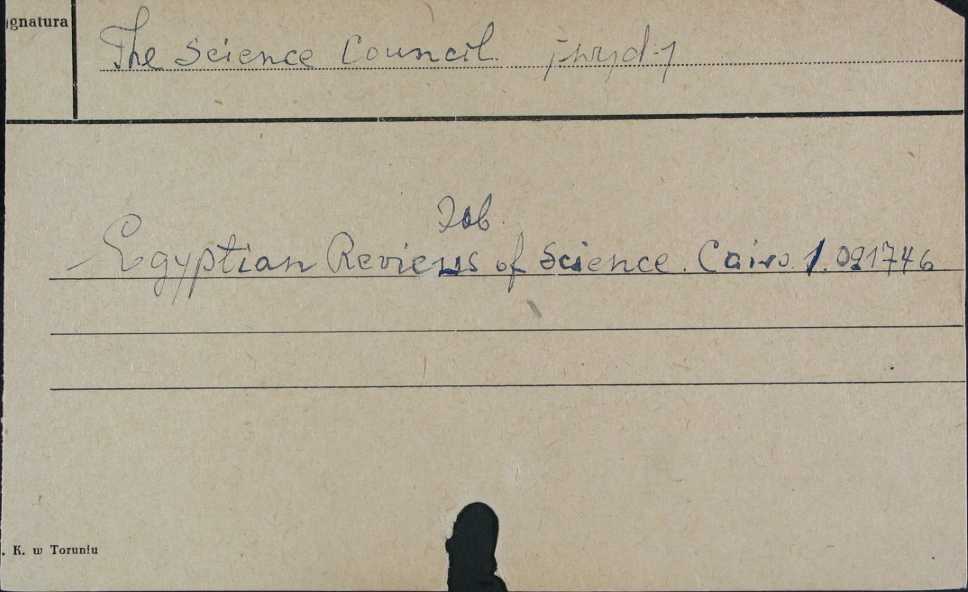 ignatura
The Science Council.
Zob.
Egyptian Reviews of Science. Cairo 1. 091746
. K. w Toruniu